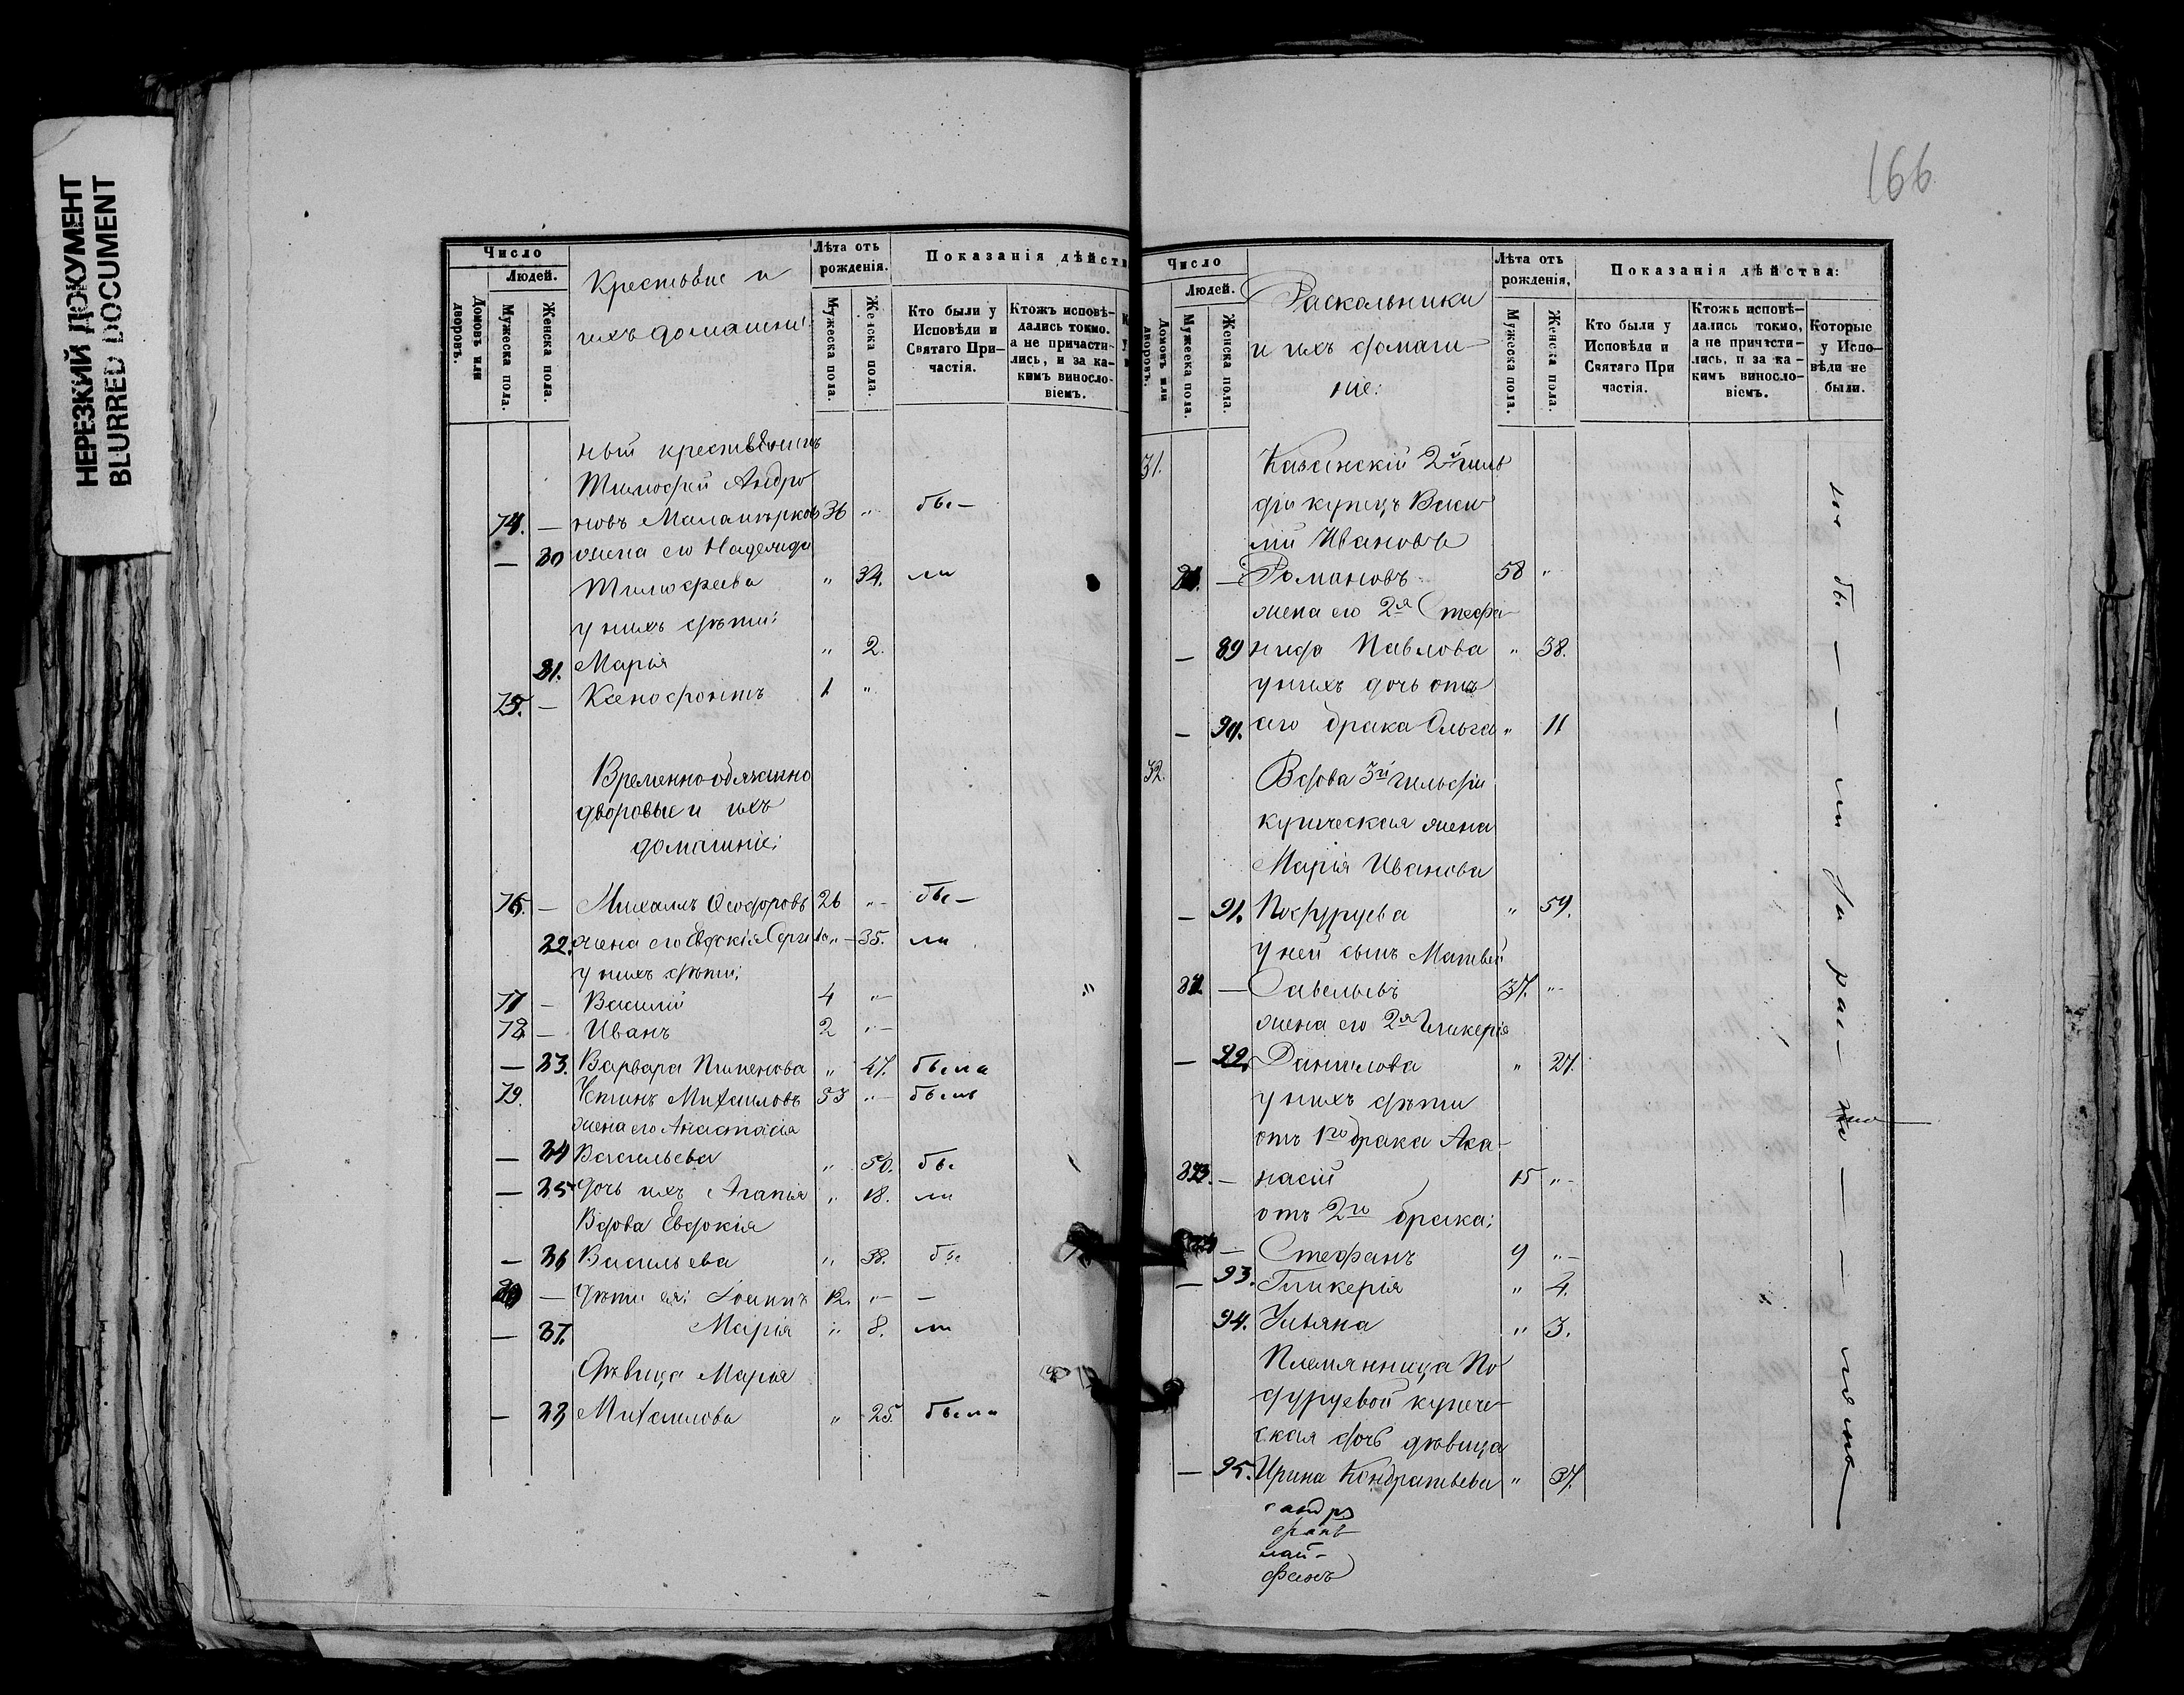 НЕРЕЗКИЙ ДОКУМЕНТ
BLURRED DOCUMENT
Число
Людей.
Домовъ или дворовъ.
Мужеска пола.
Женска пола.
Крестьяне и
ихъ домашніе
Лѣта отъ рожденія.
Мужеска пола.
Женска пола.
Показанія дѣйств
Кто были у Исповѣди и Святаго Причастія.
Ктожъ исповѣдались токмо. а не причастились, и за какимъ винословіемъ.
ный крестьянинъ
Тимофей Андро
74. — новъ 36 " бы —
— 80 жена его Надежда
Тимофеева " 34. ли
у нихъ дѣти:
81. Марья " 2.
75. — Ксенофонтъ 1 "
Временнообязанно
дворовые и ихъ
домашніе:
76. — Михаилъ Ѳеодоровъ 26 " — бы —
жена его Евдокія 35. ли
у нихъ дѣти:
77 — Василій 4 " —
78 — Иванъ 2 " —
— Варвара Пименова " 47. была
79. Михаиловъ 53 " — былъ
жена его Анастасія
— Васильева " 50. бы
— дочь ихъ Агапія " 18. ли
Вдова Евдокія
— Васильева " 38. бы
— дѣти ея: Іоаннъ 12. " — —
— Марія " 8. ли
Дѣвица Марья
— Михаилова " 25. была
166
Число
Людей.
Домовъ или дворовъ.
Мужеска пола.
Женска пола.
Раскольники
и ихъ домаш
ніе:
Лѣта отъ рожденія,
Мужеска пола.
Женска пола.
Показанія дѣйства:
Кто были у Исповѣди и Святаго При частія.
Ктожъ исповѣдались токмо, а не причастились, и за какимъ винословіемъ.
Которые у Исповѣди не были.
31. Казанскій 2й гиль
діи купецъ Васи
лій Ивановъ
— Романовъ 58 "
жена его 2я Стефа
— 89 нида Павлова " 38.
у нихъ дочь отъ
— 90. его брака Ольга " 11
32. Вдова 3й гильдіи
купеческая жена
Марія Иванова
— 91. Подуруева " 59.
у ней сынъ Матвей
— Савельевъ 37. " —
жена его 2я Гликерія
— 92. Данилова " 27.
у нихъ дѣти
отъ 1го брака Ака-
— насій 15 " —
отъ 2го брака:
— Стефанъ 9 " —
— 93. Гликерія " 4.
94. Ульяна " 3.
Племянница По
дуруевой купече
ская дочь дѣвица
— 95. Ирина Кондратьева " 37.
не бы — — ли по рас — — —